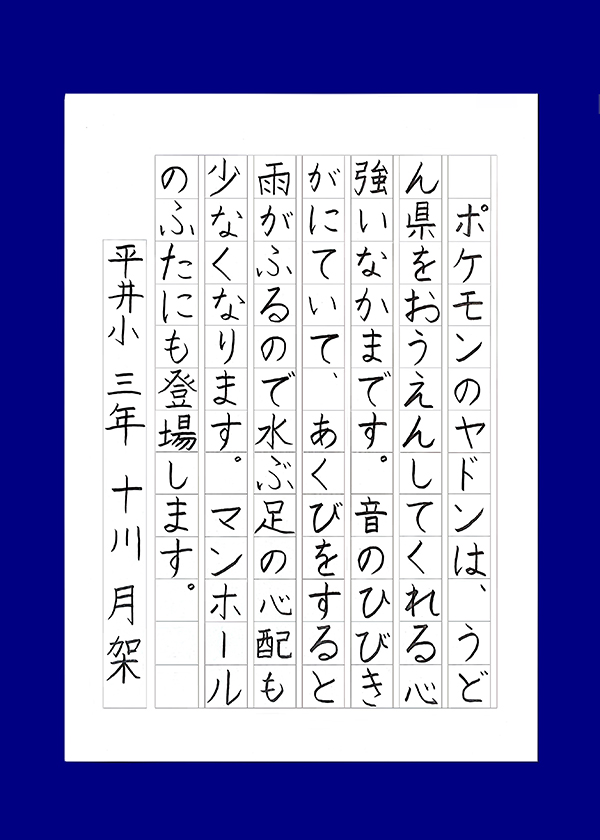 ポケモンのヤドンは、うど
ん県をおうえんしてくれる心
強いなかまです。音のひびき
がにていて、あくびをすると
雨がふるので水ぶ足の心配も
少なくなります。マンホール
のふたにも登場します。
平井小 三年 十川 月架